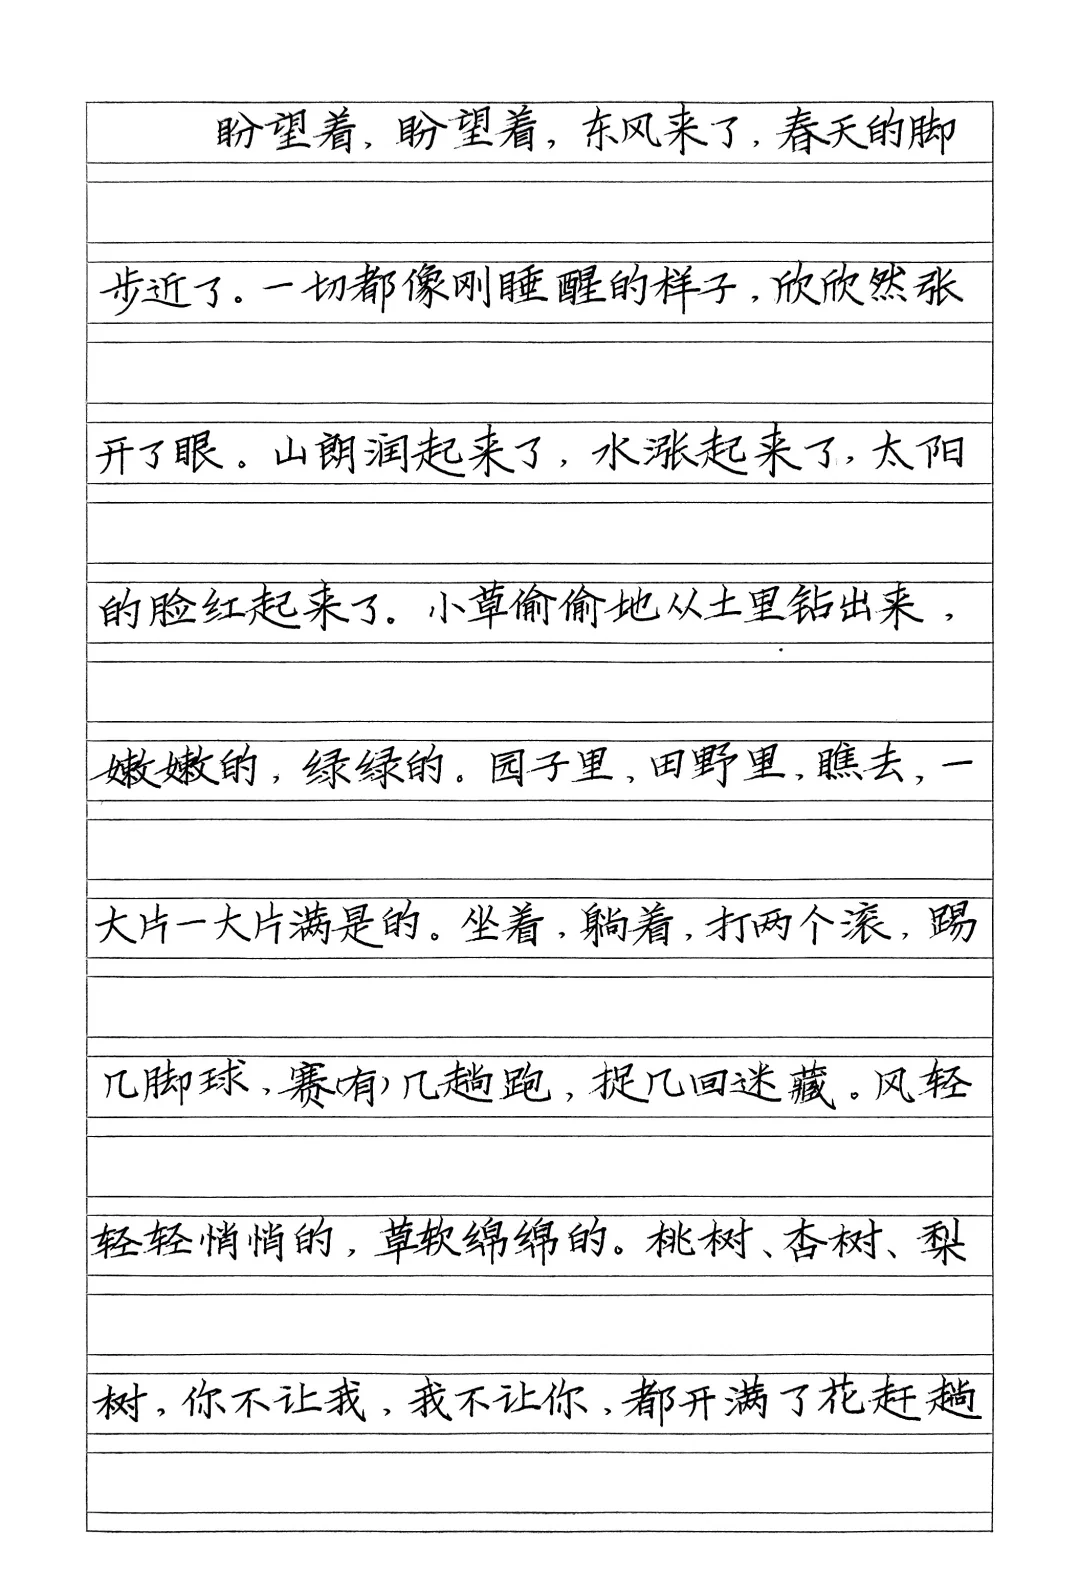 盼望着，盼望着，东风来了，春天的脚
步近了。一切都像刚睡醒的样子，欣欣然张
开了眼。山朗润起来了，水涨起来了，太阳
的脸红起来了。小草偷偷地从土里钻出来，
嫩嫩的，绿绿的。园子里，田野里，瞧去，一
大片一大片满是的。坐着，躺着，打两个滚，踢
几脚球，赛(有)几趟跑，捉几回迷藏。风轻
轻轻悄悄的，草软绵绵的。桃树、杏树、梨
树，你不让我，我不让你，都开满了花赶趟